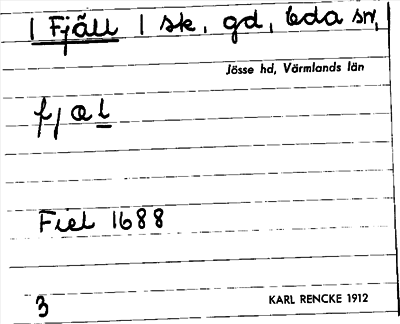 | Fjäll | sk, gd, Eda sn,
Jösse hd, Värmlands län
fjæl
Fiel 1688
3
KARL RENCKE 1912